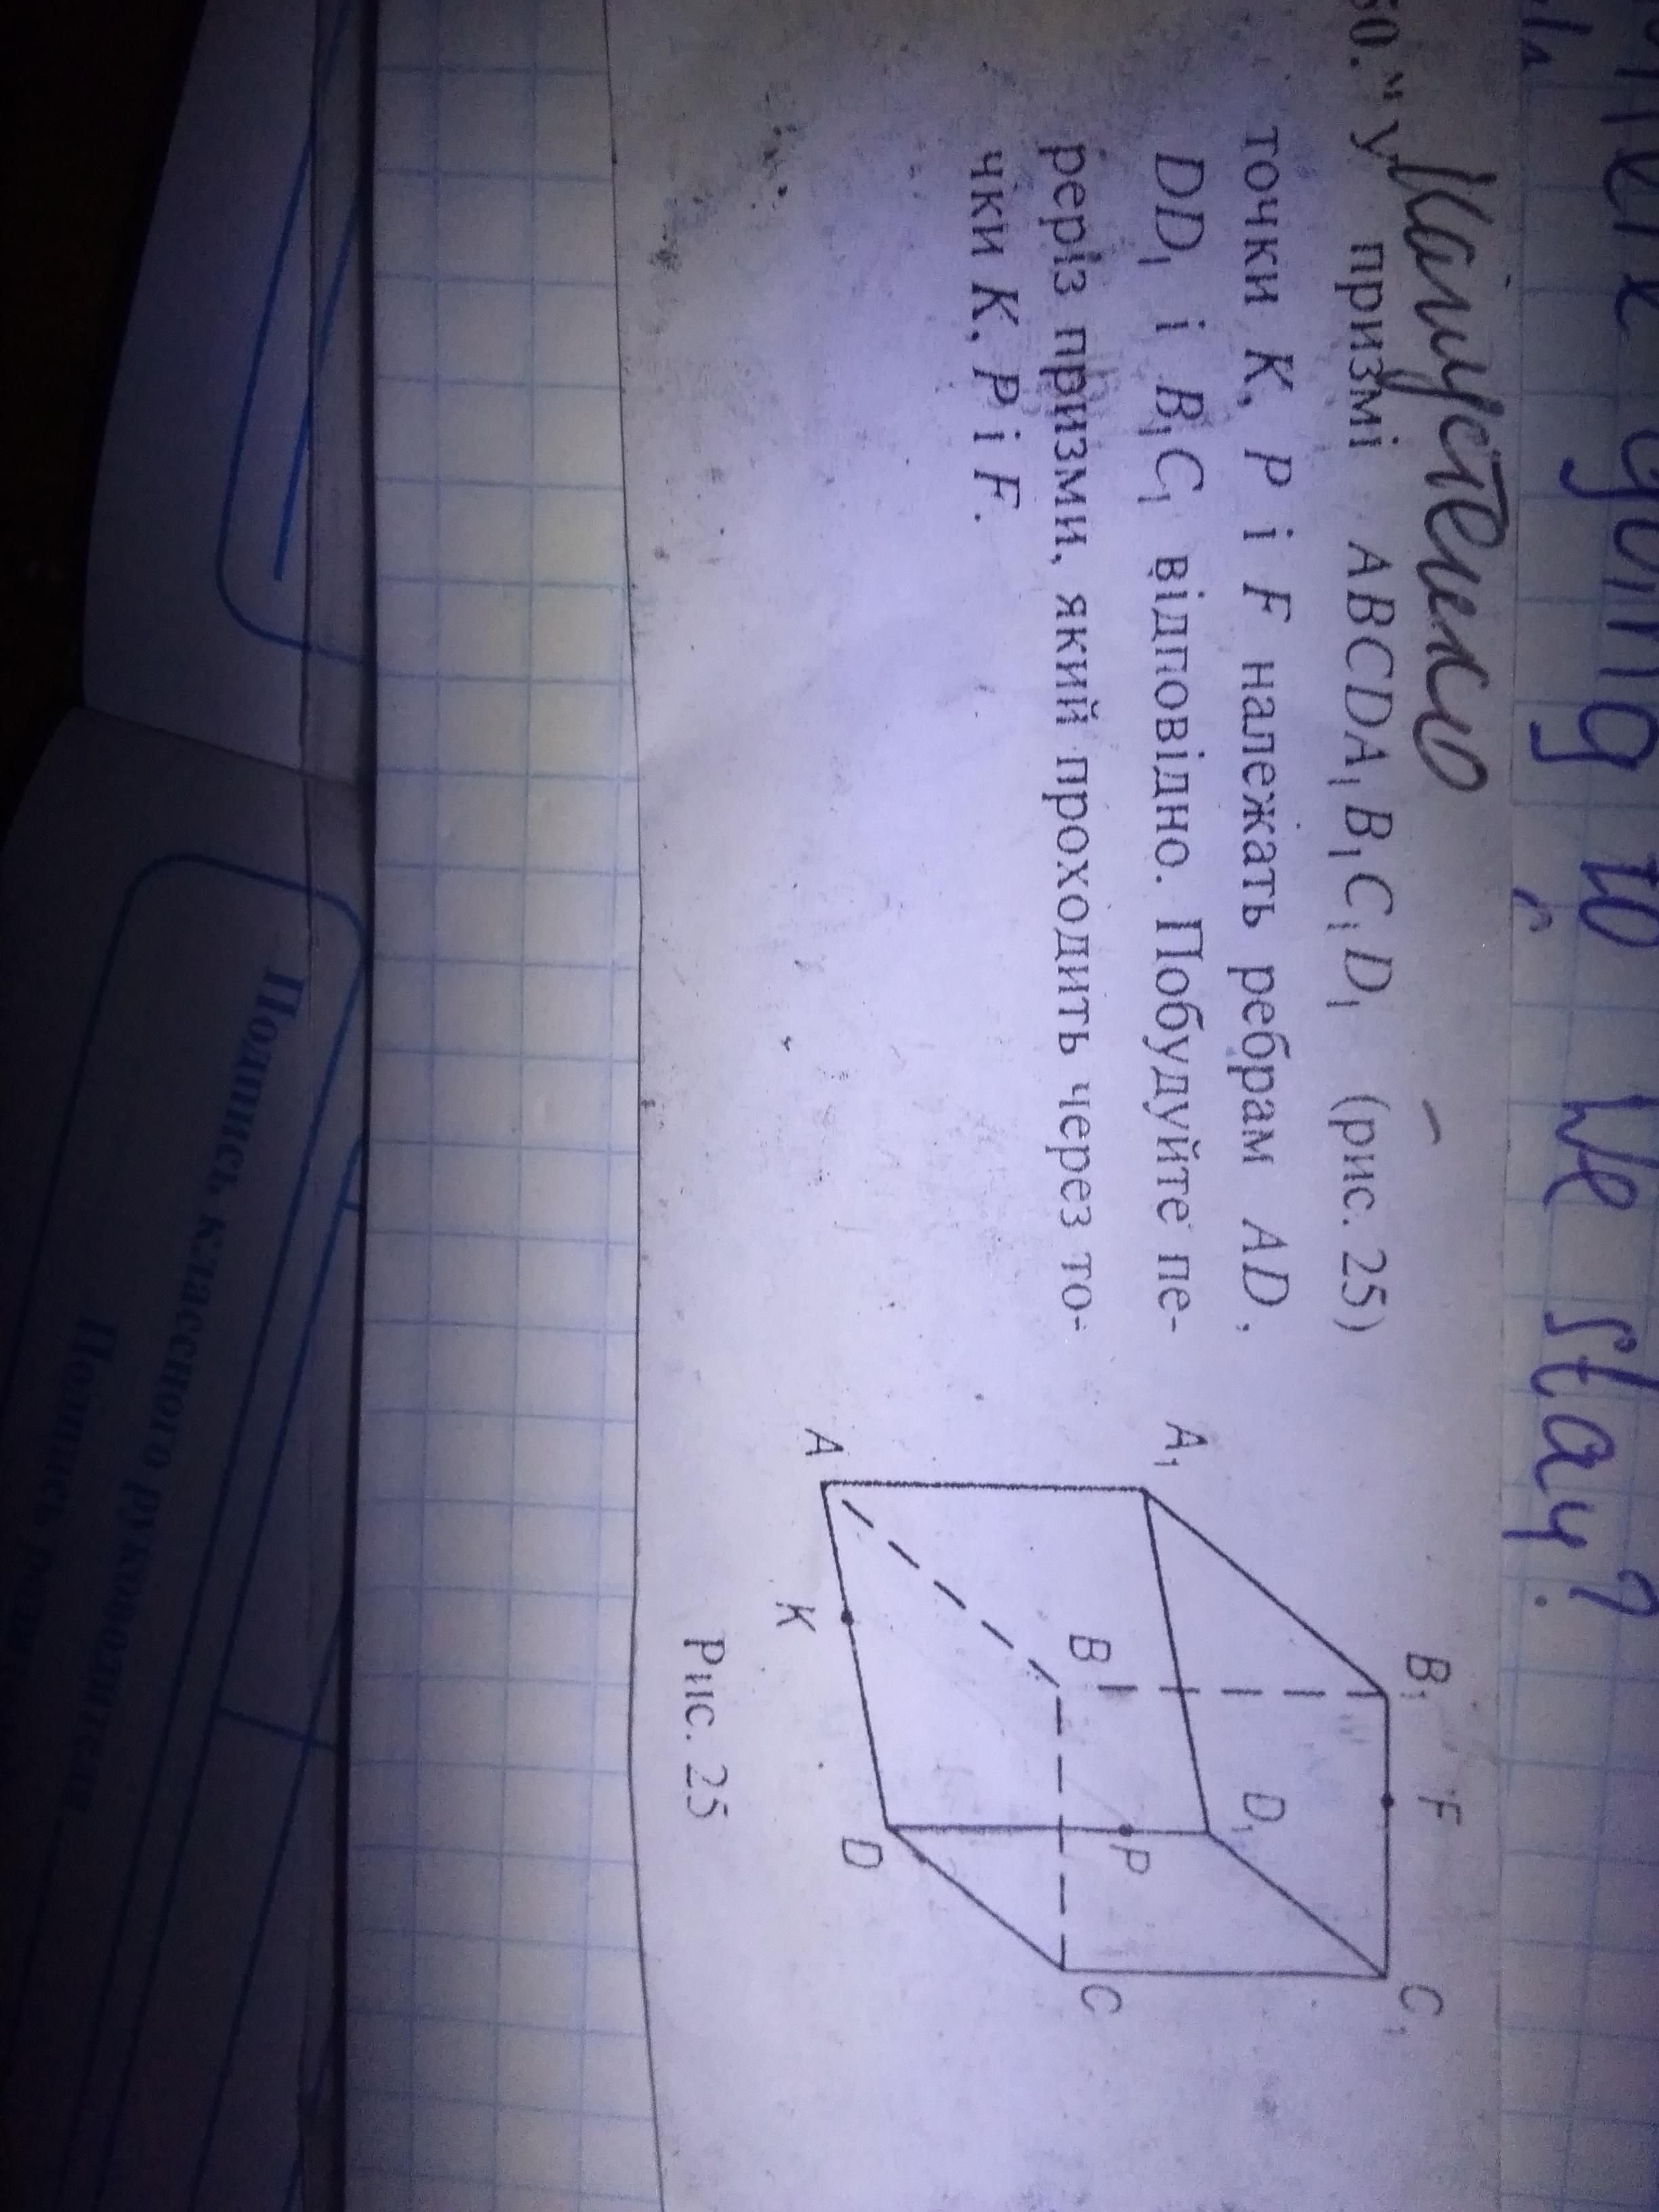 going to we stay?
Капустенко
60. У призмі ABCDA₁B₁C₁D₁ (рис. 25)
точки K, P і F належать ребрам AD,
DD₁ і B₁C₁ відповідно. Побудуйте пе-
реріз призми, який проходить через то-
чки K, P і F.
B₁ F C₁
A₁ D₁
B P C
A K D
Рис. 25
Подпись классного руководителя
Подпись